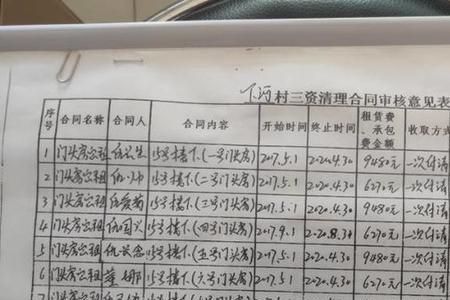 下河村三资清理合同审核意见表
序号 合同名称 合同人 合同内容 开始时间 终止时间 租赁费、承包费金额 收取方式
1 门头房出租 15号楼下(一号门头房) 2017.5.1 2020.4.30 9480元 一次付清
2 门头房出租 15号楼下(二号门头房) 2017.5.1 2020.4.30 6270元 一次付清
3 门头房出租 15号楼下(三号门头房) 2017.5.1 2020.4.30 9480元 一次付清
4 门头房出租 15号楼下(四号门头房) 2017.9.1 2020.8.31 6270元 一次付清
5 门头房出租 15号楼下(五号门头房) 2017.5.1 2020.4.30 9480元 一次付清
6 门头房出租 15号楼下(六号门头房) 2017.5.1 2020.4.30 6270元 一次付清